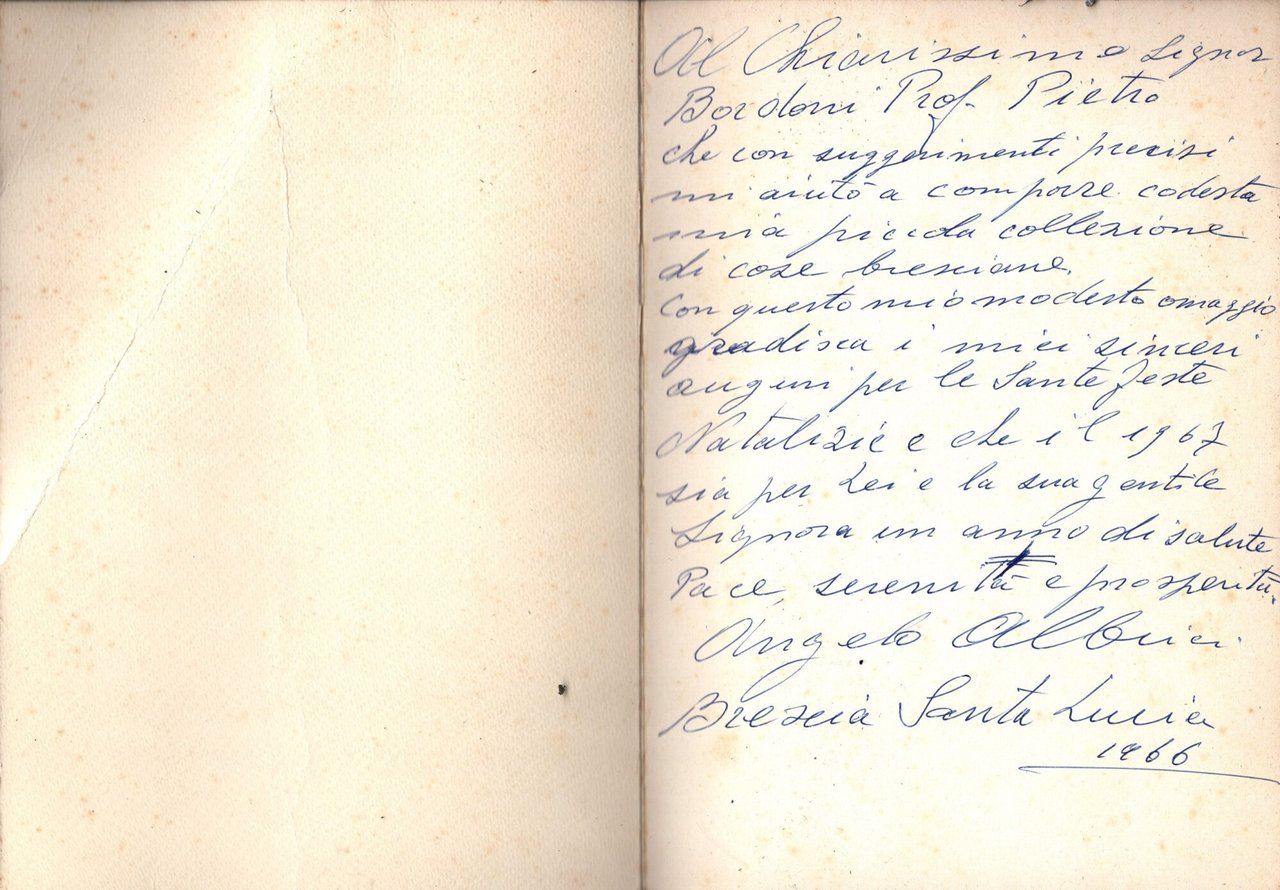 Al Chiarissimo Signor
Bordoni Prof. Pietro
che con suggerimenti precisi
mi aiutò a comporre codesta
mia piccola collezione
di cose bresciane.
Con questo mio modesto omaggio
gradisca i miei sinceri
auguri per le Sante Feste
Natalizie e che il 1967
sia per Lei e la sua gentile
Signora un anno di salute
Pace, serenità e prosperità.
Angelo Albrici
Brescia Santa Lucia
1966